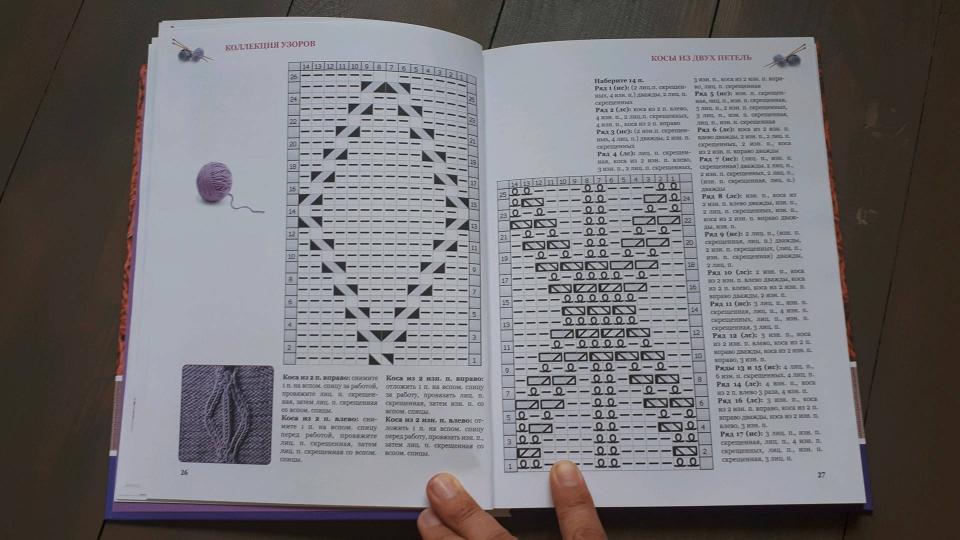 КОЛЛЕКЦИЯ УЗОРОВ
14 13 12 11 10 9 8 7 6 5 4 3 2 1
Коса из 2 п. вправо: снимите
1 п. на вспом. спицу за работой,
провяжите лиц. п. скрещен-
ную, затем лиц. п. скрещенная
со вспом. спицы.
Коса из 2 п. влево: сни-
мите 1 п. на вспом. спицу
перед работой, провяжите
лиц. п. скрещенная, затем
лиц. п. скрещенная со вспом.
спицы.
Коса из 2 изн. п. вправо:
отложить 1 п. на вспом. спицу
за работу, провязать лиц. п.
скрещенная, затем изн. п. со
вспом. спицы.
Коса из 2 изн. п. влево: от-
ложить 1 п. на вспом. спицу
перед работу, провязать изн. п.,
затем лиц. п. скрещенная со
вспом. спицы.
26
КОСЫ ИЗ ДВУХ ПЕТЕЛЬ
Наберите 14 п.
Ряд 1 (ис): (2 лиц.п. скрещен-
ных, 4 изн. п.) дважды, 2 лиц. п.
скрещенных
Ряд 2 (лс): коса из 2 п. влево,
4 изн. п., 2 лиц.п. скрещенных,
4 изн. п., коса из 2 п. вправо
Ряд 3 (ис): (2 изн.п. скрещен-
ных, 4 лиц. п.) дважды, 2 изн. п.
скрещенных
Ряд 4 (лс): лиц. п. скрещен-
ная, коса из 2 изн. п. влево,
3 изн. п., 2 лиц. п. скрещенных,
14 13 12 11 10 9 8 7 6 5 4 3 2 1
3 изн. п., коса из 2 изн. п. впра-
во, лиц. п. скрещенная
Ряд 5 (ис): изн. п. скрещен-
ная, лиц. п., изн. п. скрещенная,
3 лиц. п., 2 изн. п. скрещенных,
3 лиц. п., изн. п. скрещенная,
лиц. п., изн. п. скрещенная
Ряд 6 (лс): коса из 2 изн. п.
влево дважды, 2 изн. п., 2 лиц. п.
скрещенных, 2 изн. п., коса
из 2 изн. п. вправо дважды
Ряд 7 (ис): (лиц. п., изн. п.
скрещенная) дважды, 2 лиц. п.,
2 изн. п. скрещенных, 2 лиц. п.,
(изн. п. скрещенная, лиц. п.)
дважды
Ряд 8 (лс): изн. п., коса из
2 изн. п. влево дважды, изн. п.,
2 лиц. п. скрещенных, изн. п.,
коса из 2 изн. п. вправо дваж-
ды, изн. п.
Ряд 9 (ис): 2 лиц. п., (изн. п.
скрещенная, лиц. п.) дважды,
2 изн. п. скрещенных, (лиц. п.,
изн. п. скрещенная) дважды,
2 лиц. п.
Ряд 10 (лс): 2 изн. п., коса
из 2 изн. п. влево дважды, коса
из 2 п. влево, коса из 2 изн. п.
вправо дважды, 2 изн. п.
Ряд 11 (ис): 3 лиц. п., изн. п.
скрещенная, лиц. п., 4 изн. п.
скрещенных, лиц. п., изн. п.
скрещенная, 3 лиц. п.
Ряд 12 (лс): 3 изн. п., коса
из 2 изн. п. влево, коса из 2 п.
вправо дважды, коса из 2 изн. п.
вправо, 3 изн. п.
Ряды 13 и 15 (ис): 4 лиц. п.,
6 изн. п. скрещенных, 4 лиц. п.
Ряд 14 (лс): 4 изн. п., коса
из 2 п. влево 3 раза, 4 изн. п.
Ряд 16 (лс): 3 изн. п., коса
из 2 изн. п. вправо, коса из 2 п.
вправо дважды, коса из 2 изн. п.
влево, 3 изн. п.
Ряд 17 (ис): 3 лиц. п., изн. п.
скрещенная, лиц. п., 4 изн. п.
скрещенных, лиц. п., изн. п.
скрещенная, 3 лиц. п.
27